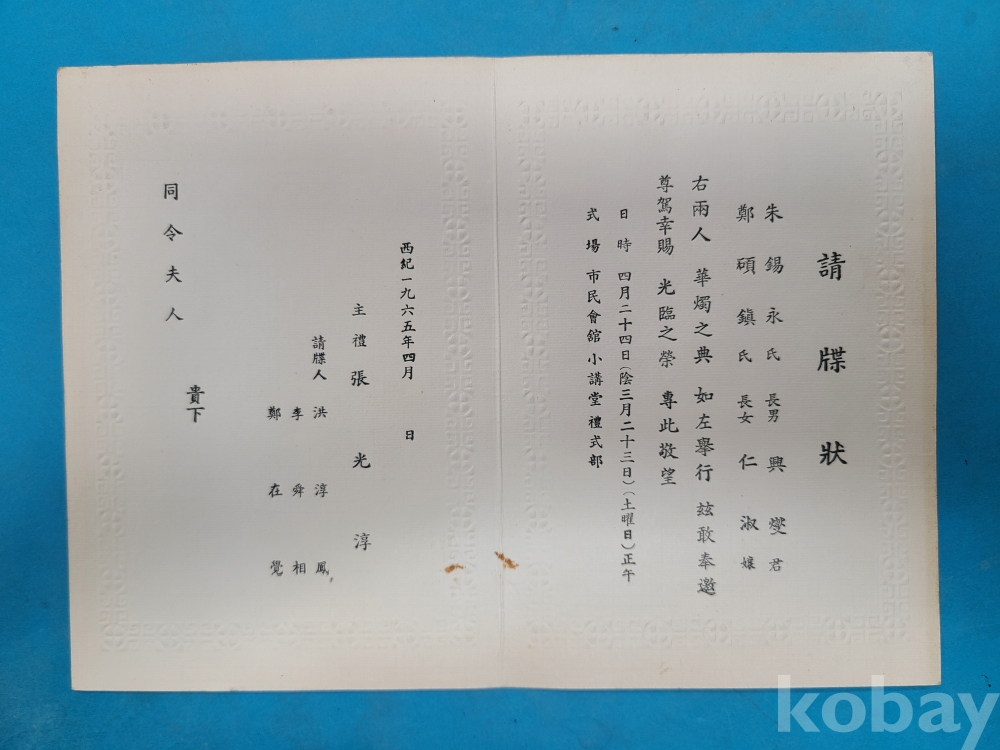 請牒狀
朱錫永氏 長男 興燮 君
鄭碩鎭氏 長女 仁淑 孃
右兩人 華燭之典 如左擧行 玆敢奉邀
尊駕幸賜 光臨之榮 專此敬望
日時 四月二十四日(陰三月二十三日)(土曜日)正午
式場 市民會舘小講堂禮式部
西紀一九六五年四月 日
主禮 張光淳
請牒人 洪淳鳳
李舜相
鄭在覺
貴下
同令夫人
kobay